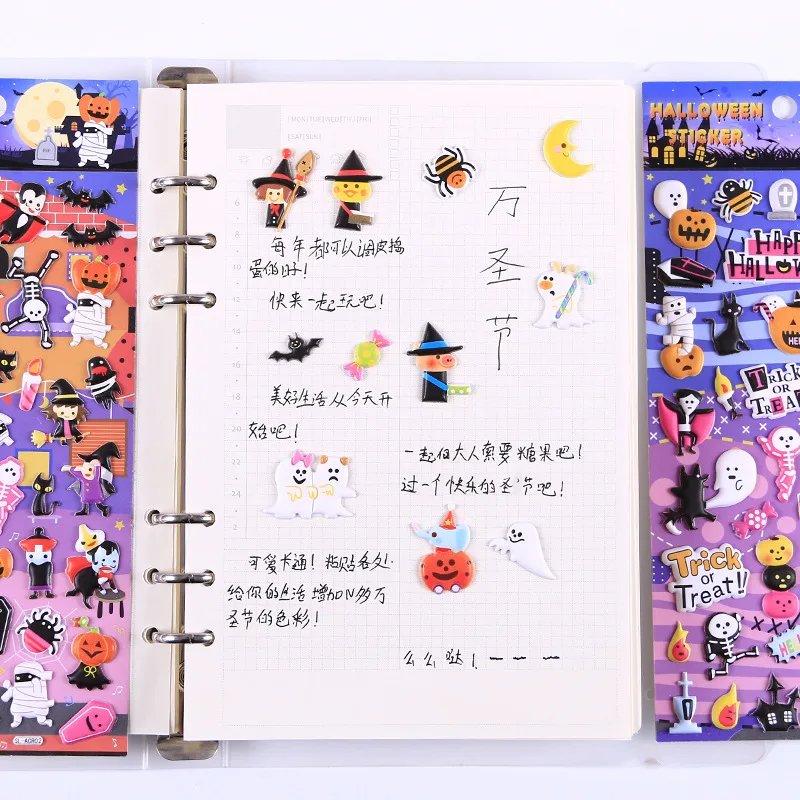 HALLOWEEN
STICKER
[MON[TUE[WED[THU[FRI]
[SAT[SUN]
6
8
10
12
14
16
18
20
22
24
2
万
圣
节
每年都可以调皮捣
蛋的好!
快来一起玩吧!
美好生活从今天开
始吧!
一起向大人索要糖果吧!
过一个快乐的圣节吧!
可爱卡通!粘贴各处
给你的生活增加N多万
圣节的色彩!
么么哒!
HAPPY
HALLOWE
TRICK
OR
TREA
Trick
or
Treat!!
SL-AGR02